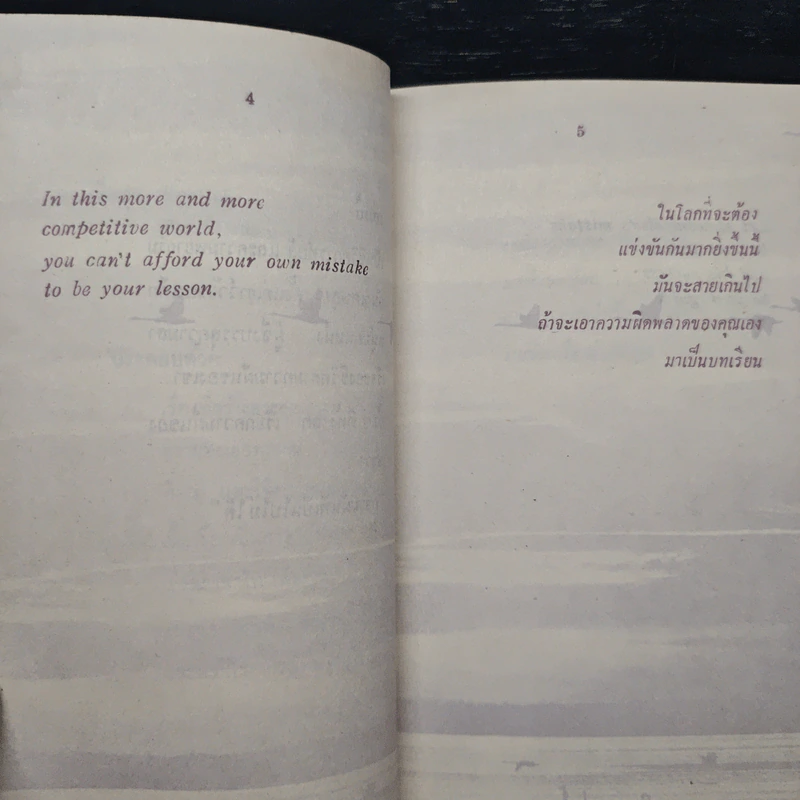 4
In this more and more
competitive world,
you can't afford your own mistake
to be your lesson.
5
ในโลกที่จะต้อง
แข่งขันกันมากยิ่งขึ้นนี้
มันจะสายเกินไป
ถ้าจะเอาความผิดพลาดของคุณเอง
มาเป็นบทเรียน